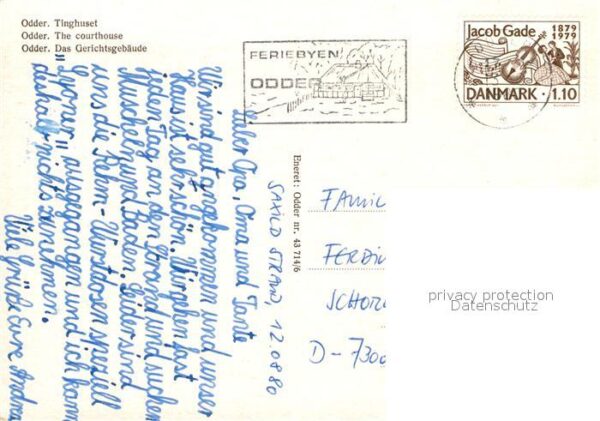 Odder. Tinghuset
Odder. The courthouse
Odder. Das Gerichtsgebäude
FERIEBYEN
ODDER
Jacob Gade 1879
1979
DANMARK · 1.10
Eneret: Odder nr. 43 714/6
SAKSILD STRAND 12.08.80
Lieber Opa, Oma und Tante
Wir sind gut angekommen und unser
Haus ist sehr schön. Wir gehen fast
jeden Tag an den Strand und suchen
Muscheln und Baden. Leider sind
uns die Rehm-Wurstdosen speziell
ausgegangen und ich kann
deshalb nichts zunehmen.
Viele Grüße Eure Andrea
FAMIL
FERDI
SCHOR
D-7300
privacy protection
Datenschutz